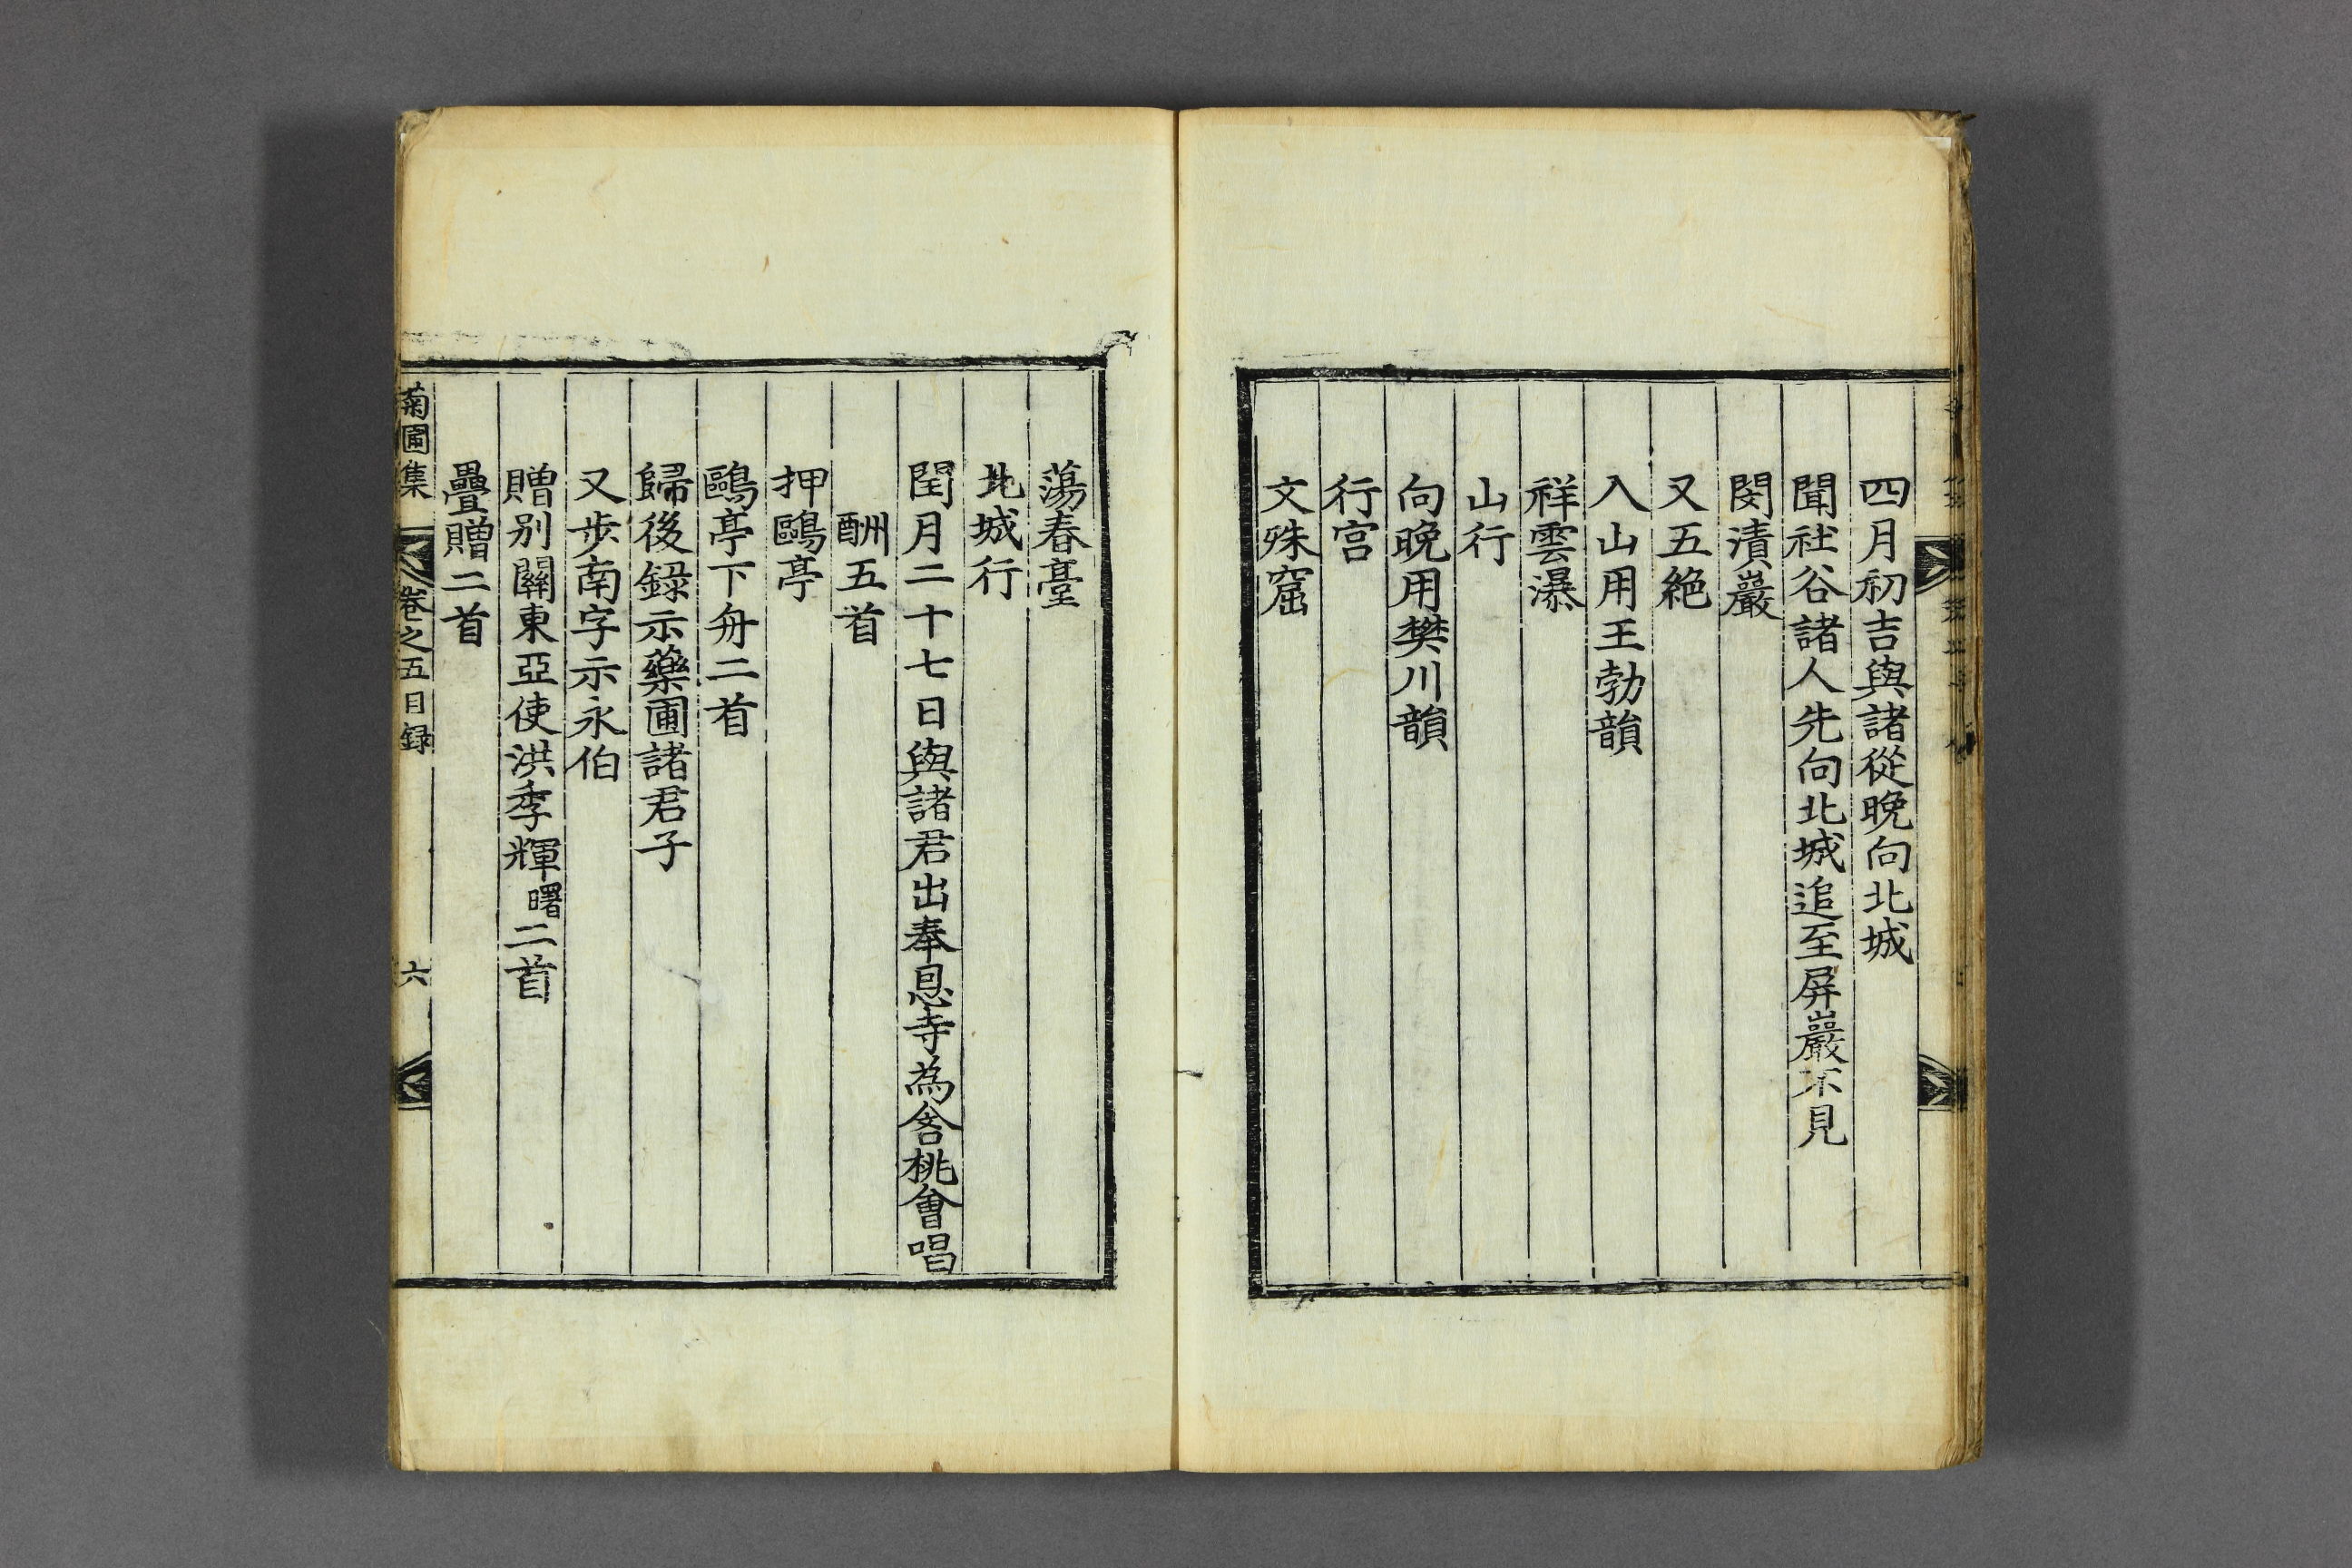 四月初吉與諸從晚向北城
聞社谷諸人先向北城追至屛巖不見
閔漬巖
又五絶
入山用王勃韻
祥雲瀑
山行
向晚用樊川韻
行宫
文殊窟
蕩春臺
北城行
閏月二十七日與諸君出奉恩寺為㕘桃會唱
酬五首
押鷗亭
鷗亭下舟二首
歸後録示藥圃諸君子
又步南字示永伯
贈别關東亞使洪季輝曙二首
疊贈二首
菊圃集 卷之五目録 六